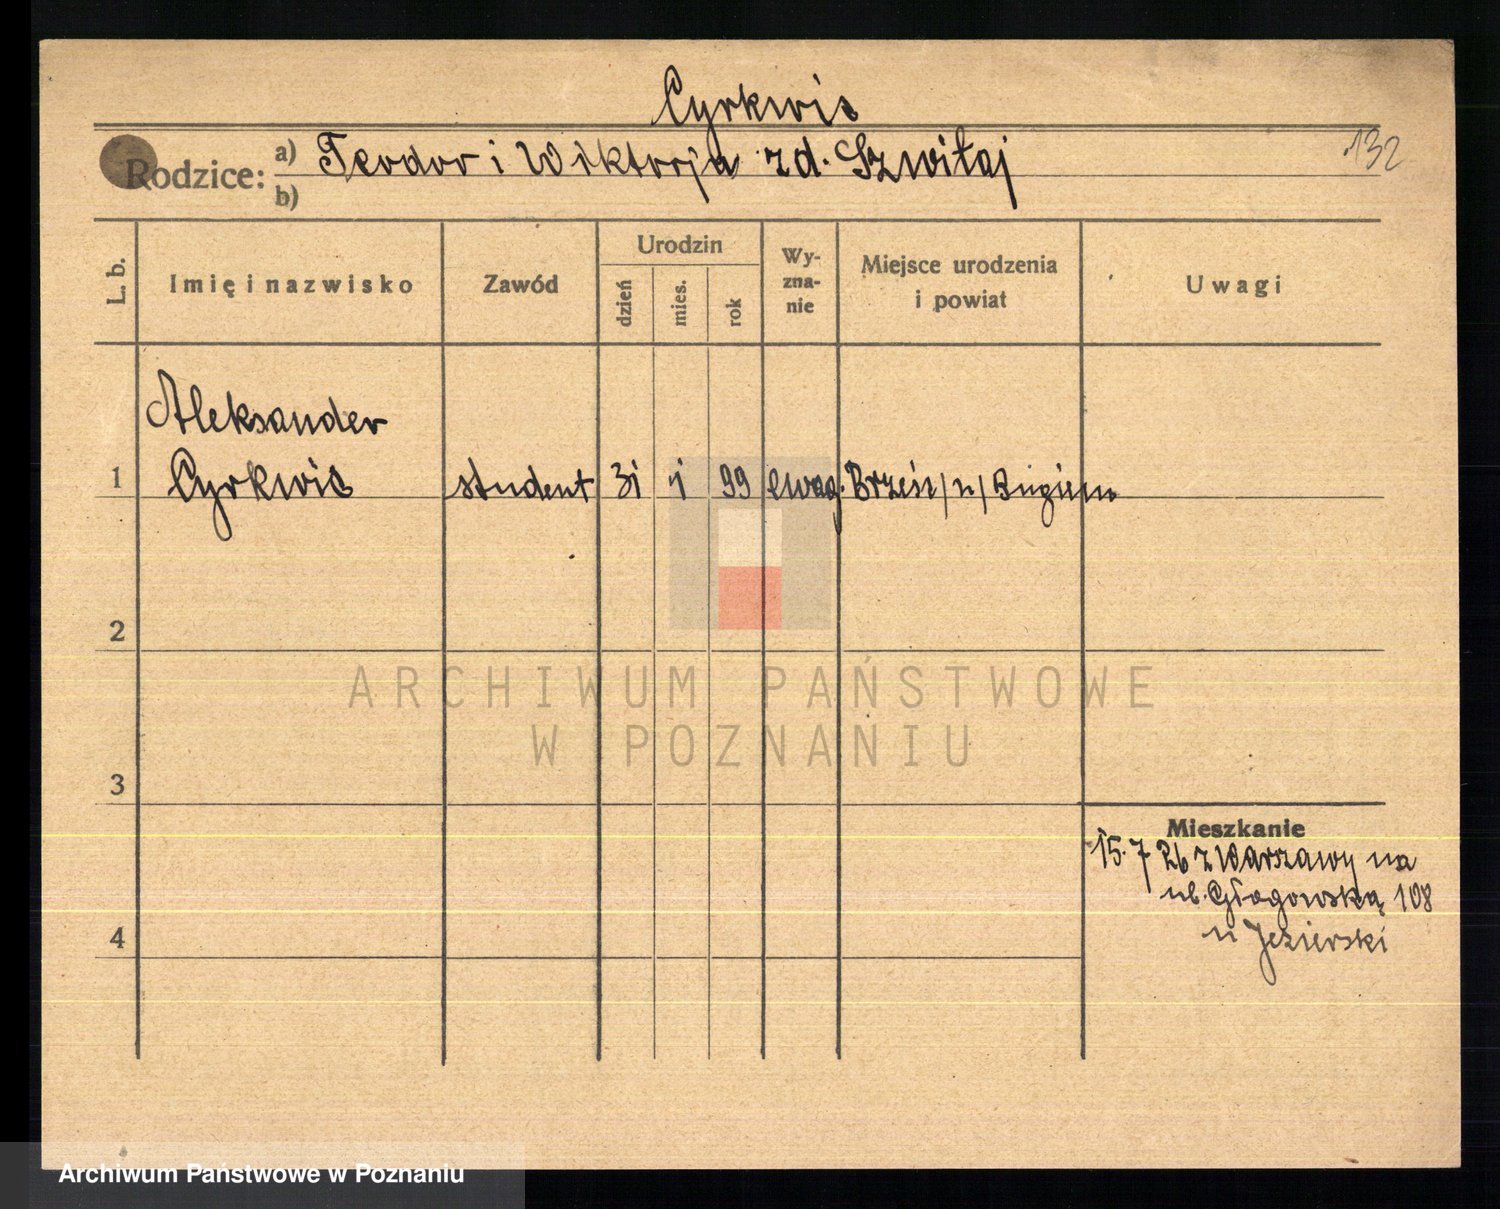 Cyrkwis
132
Rodzice: a) Teodor i Wiktorja z d. Szwitaj
b)
L. b.
Imię i nazwisko
Zawód
Urodzin
dzień
mies.
rok
Wy-
zna-
nie
Miejsce urodzenia
i powiat
Uwagi
Aleksander
1 Cyrkwis student 31 1 99 ewag. Brześć /n/ Bugiem
2
3
4
Mieszkanie
15.7 26 z Warszawy na
ul. Głogowską 108
u Jezierski
ARCHIWUM PAŃSTWOWE
W POZNANIU
Archiwum Państwowe w Poznaniu